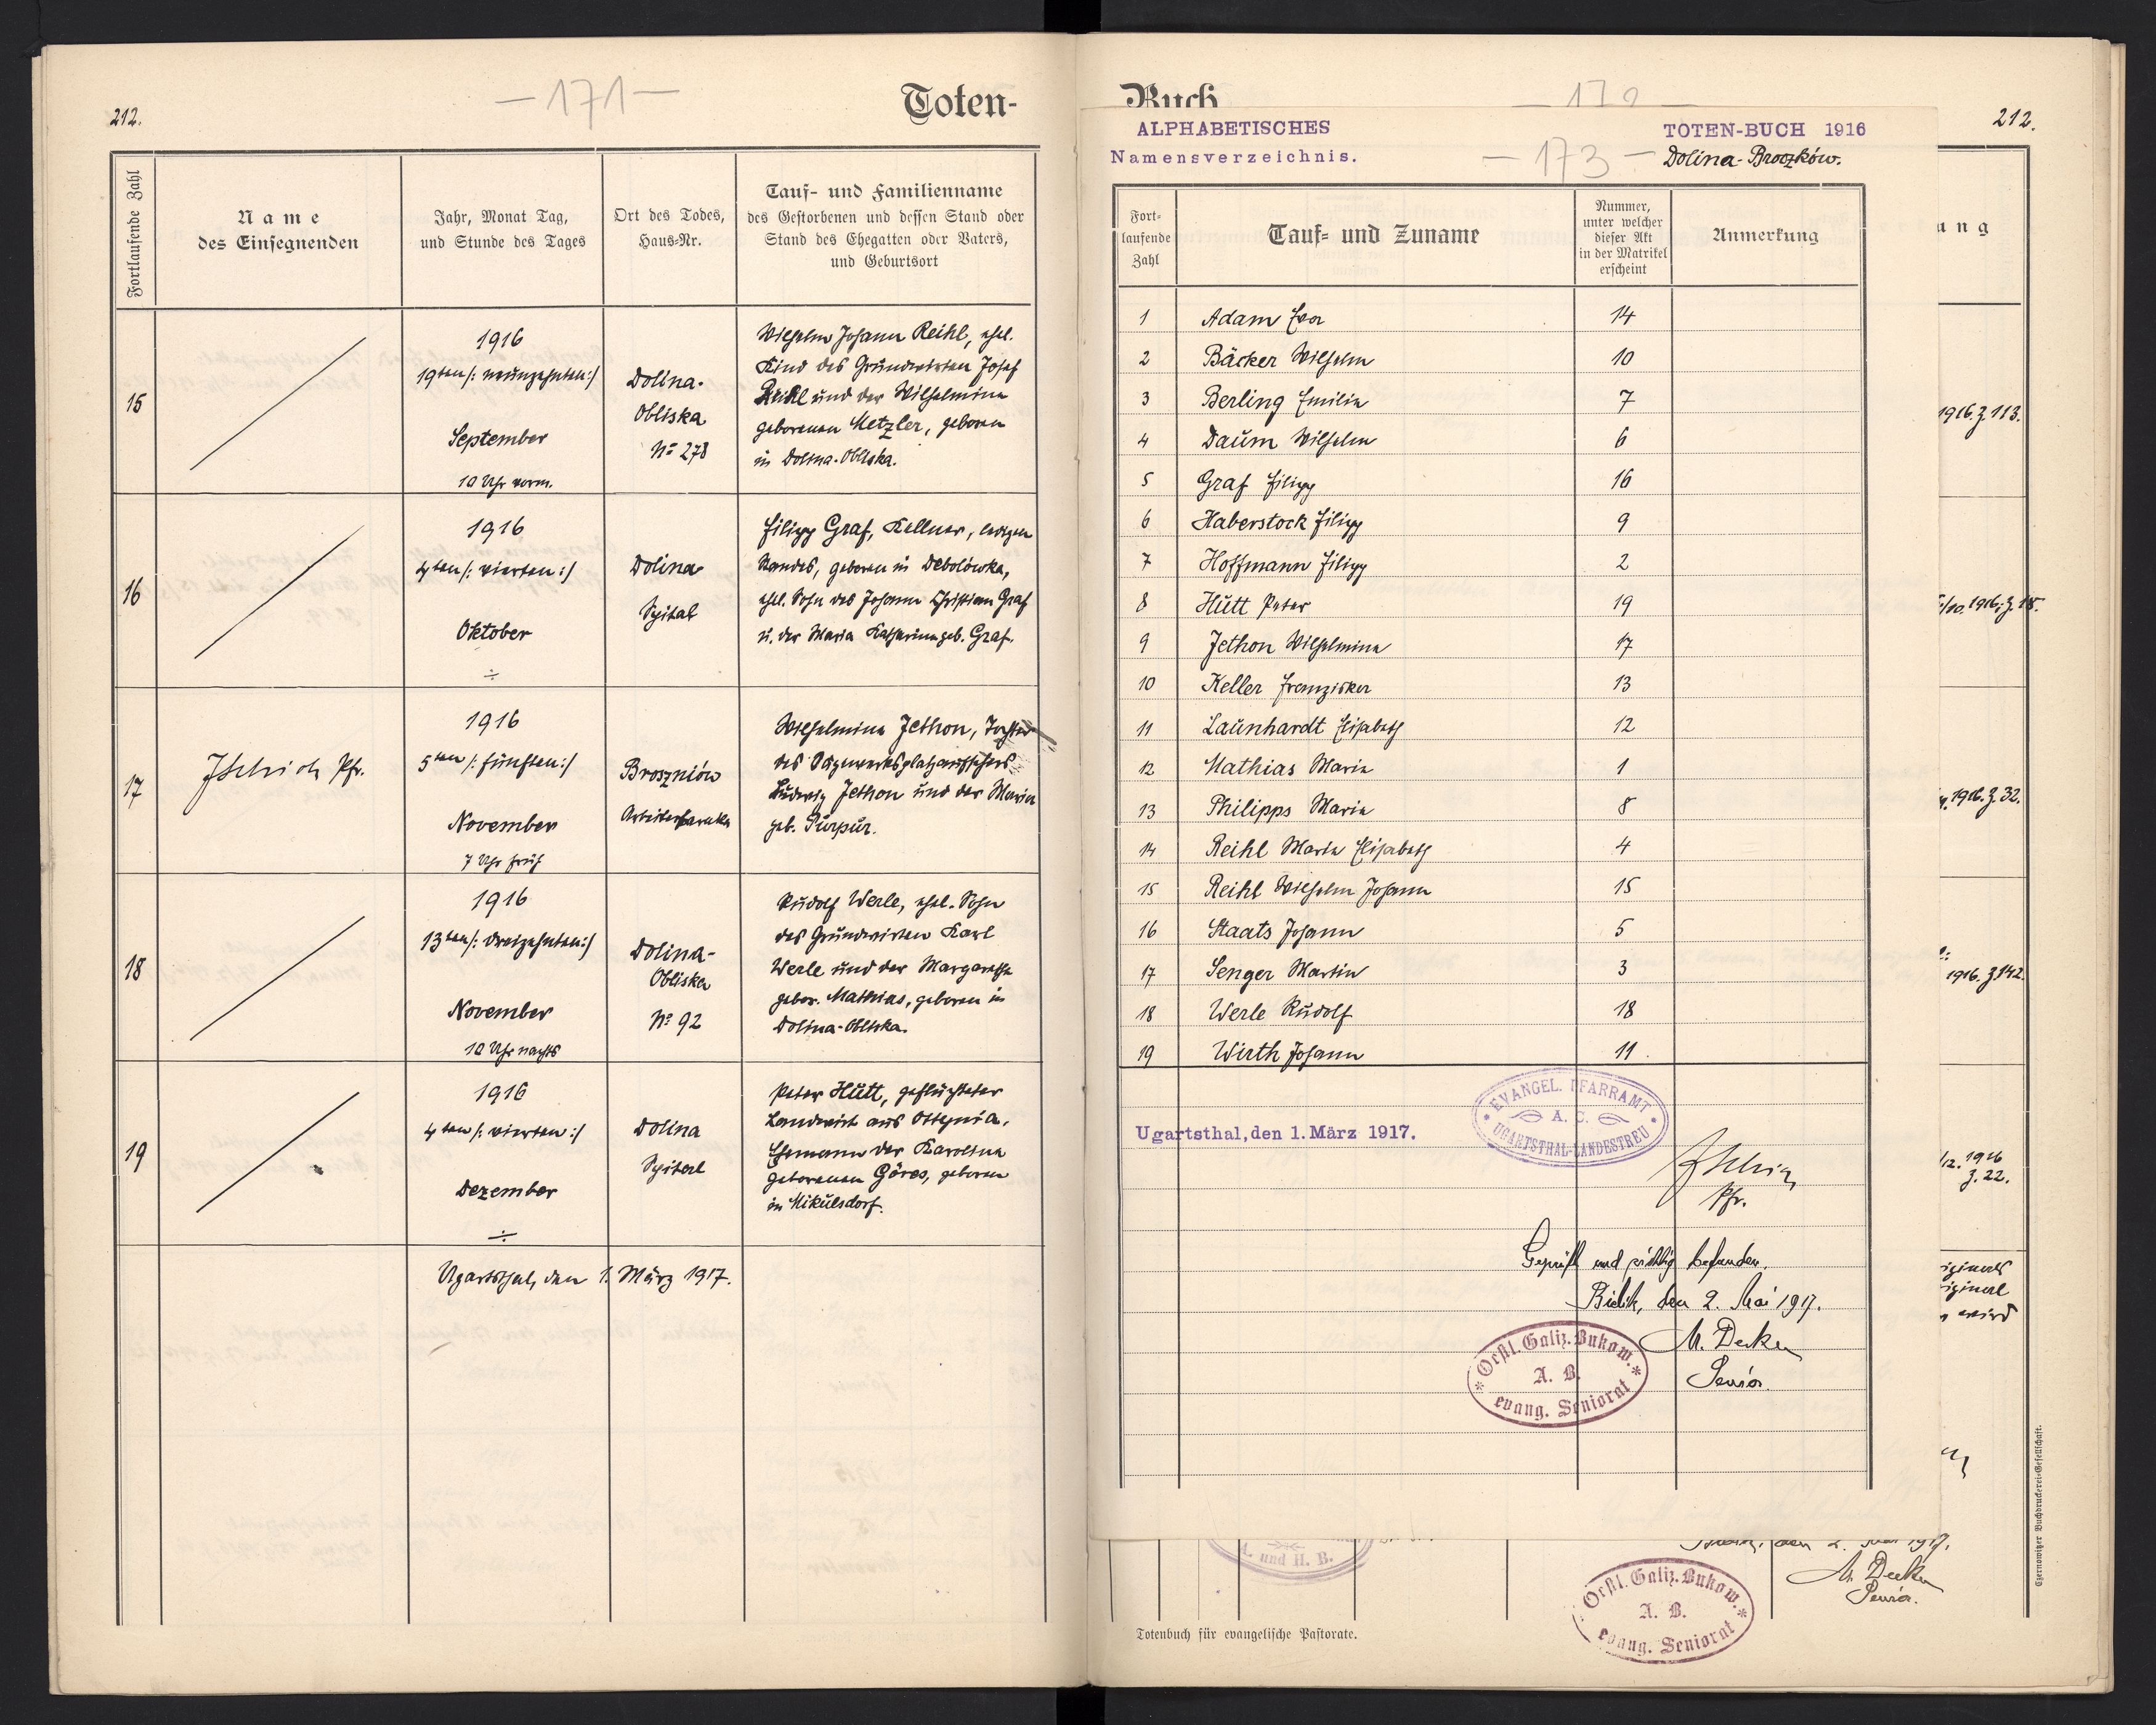 212.
— 171 —
Toten-
Fortlaufende Zahl
Name
des Einsegnenden
Jahr, Monat Tag,
und Stunde des Tages
Ort des Todes,
Haus-Nr.
Tauf- und Familienname
des Gestorbenen und dessen Stand oder
Stand des Ehegatten oder Vaters,
und Geburtsort
15
1916
19ten /: neunzehnten :/
September
10 Uhr vorm.
Dolina-
Obliska
No 278
Wilhelm Johann Reihl, ehel.
Kind des Grundwirten Josef
Reihl und der Wilhelmine
geborenen Metzler, geboren
in Dolina-Obliska.
16
1916
4ten /: vierten :/
Oktober
÷
Dolina
Spital
Filipp Graf, Kellner, ledigen
Standes, geboren in Debolówka,
ehel. Sohn des Johann Christian Graf
u. der Maria Katharina geb. Graf.
17
Pfr.
1916
5ten /: fünften :/
November
7 Uhr früh
Broszniów
Arbeiterbaracke
Wilhelmine Jethon, Tochter
des Sägewerksplatzaufsehers
Ludwig Jethon und der Maria
geb. Purpur.
18
1916
13ten /: dreizehnten :/
November
10 Uhr nachts
Dolina-
Obliska
No 92
Rudolf Werle, ehel. Sohn
des Grundwirten Karl
Werle und der Margarethe
gebor. Mathias, geboren in
Dolina-Obliska.
19
1916
4ten /: vierten :/
Dezember
÷
Dolina
Spital
Peter Hütt, geflüchteter
Landwirt aus Ottynia,
Ehemann der Karoline
geborenen Göres, geboren
in Mikulsdorf.
Ugartsthal, den 1. März 1917.
Buch
212.
ALPHABETISCHES
Namensverzeichnis.
— 173 —
TOTEN-BUCH 1916
Dolina-Broczków.
Fort-
laufende
Zahl
Tauf- und Zuname
Nummer,
unter welcher
dieser Akt
in der Matrikel
erscheint
Anmerkung
1 Adam Eva 14
2 Bäcker Wilhelm 10
3 Berling Emilie 7
4 Daum Wilhelm 6
5 Graf Filipp 16
6 Haberstock Filipp 9
7 Hoffmann Filipp 2
8 Hütt Peter 19
9 Jethon Wilhelmine 17
10 Keller Franziska 13
11 Launhardt Elisabeth 12
12 Mathias Marie 1
13 Philipps Marie 8
14 Reihl Marie Elisabeth 4
15 Reihl Wilhelm Johann 15
16 Staats Johann 5
17 Senger Martin 3
18 Werle Rudolf 18
19 Wirth Johann 11
EVANGEL. PFARRAMT
A. C.
UGARTSTHAL-LANDESTREU
Ugartsthal, den 1. März 1917.
Pfr.
Geprüft und richtig befunden.
Bielitz, den 2. Mai 1917.
M. Decker
Senior.
Östl. Galiz. Bukow.
A. B.
evang. Seniorat
ung
1916 Z. 113.
/10. 1916; Z. 18.
1916. Z. 32.
1916. Z 142.
/12. 1916
Z. 22.
wird
A. und H. B.
den 2. Mai 1917.
M. Decker
Senior.
Östl. Galiz. Bukow.
A. B.
evang. Seniorat
Totenbuch für evangelische Pastorate.
Czernowitzer Buchdruckerei-Gesellschaft.